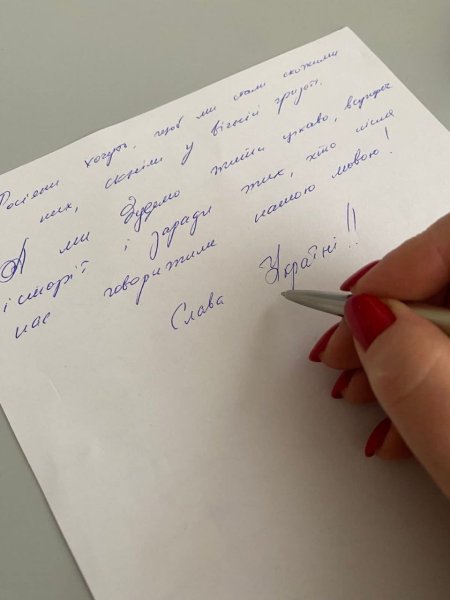 Росіяни хочуть, щоб ми стали схожими
на них, скніли у вічній гризоті.
А ми будемо жити цікаво, всупереч
історії і заради тих, хто після
нас говоритиме нашою мовою!
Слава Україні!!